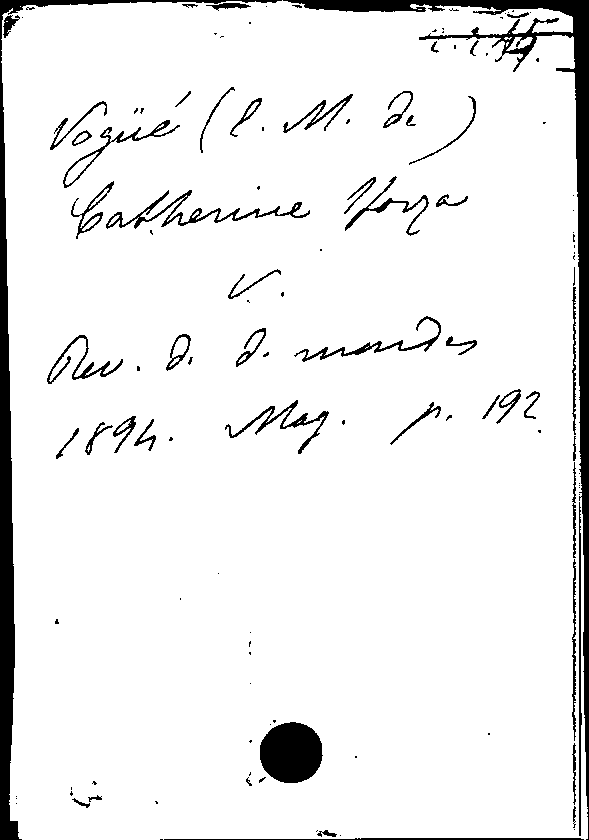 Vogüé (E. M. de)
Catherine Sforza
V.
Rev. d. d. mondes
1894. Mag. p. 192